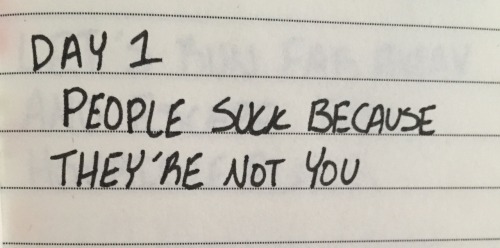 DAY 1
PEOPLE SUCK BECAUSE
THEY'RE NOT YOU